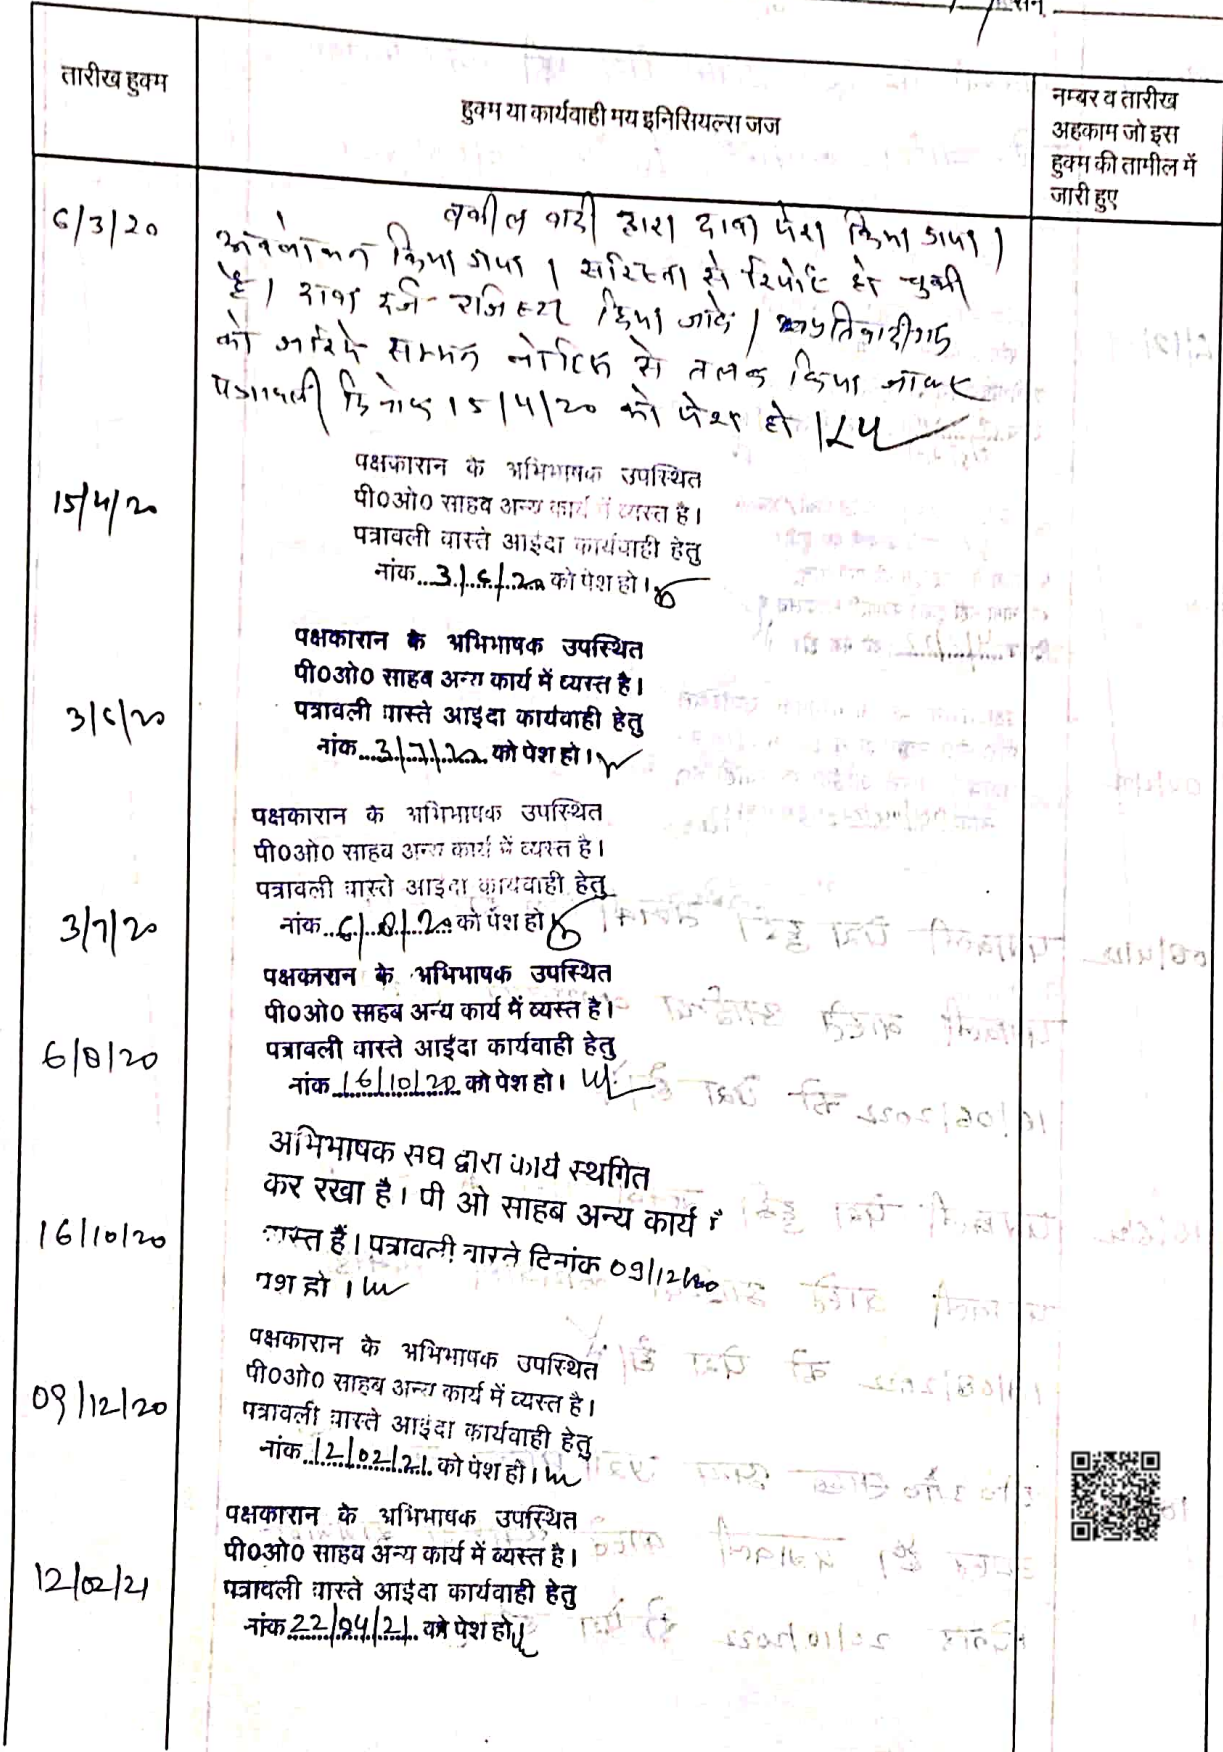 तारीख हुक्म
हुक्म या कार्यवाही मय इनिसियल्स जज
नम्बर व तारीख
अहकाम जो इस
हुक्म की तामील में
जारी हुए
6/3/20
वकील वादी द्वारा दावा पेश किया गया।
अवलोकन किया गया। सरिस्ता से रिपोर्ट हो चुकी
है। दावा दर्ज रजिस्टर किया जावे। प्रतिवादीगण
को जरिये सम्मन नोटिस से तलब किया जाकर
पत्रावली दिनांक 15/4/20 को पेश हो।
15/4/20
पक्षकारान के अभिभाषक उपस्थित
पी०ओ० साहब अन्य कार्य में व्यस्त है।
पत्रावली वास्ते आईंदा कार्यवाही हेतु
नांक 3/6/20 को पेश हो।
3/6/20
पक्षकारान के अभिभाषक उपस्थित
पी०ओ० साहब अन्य कार्य में व्यस्त है।
पत्रावली वास्ते आइंदा कार्यवाही हेतु
नांक 3/7/20 को पेश हो।
3/7/20
पक्षकारान के अभिभाषक उपस्थित
पी०ओ० साहब अन्य कार्य में व्यस्त है।
पत्रावली वास्ते आइंदा कार्यवाही हेतु
नांक 6/8/20 को पेश हो
6/8/20
पक्षकारान के अभिभाषक उपस्थित
पी०ओ० साहब अन्य कार्य में व्यस्त है।
पत्रावली वास्ते आईंदा कार्यवाही हेतु
नांक 16/10/20 को पेश हो।
16/10/20
अभिभाषक संघ द्वारा कार्य स्थगित
कर रखा है। पी ओ साहब अन्य कार्य में
व्यस्त हैं। पत्रावली वास्ते दिनांक 09/12/20
पेश हो।
09/12/20
पक्षकारान के अभिभाषक उपस्थित
पी०ओ० साहब अन्य कार्य में व्यस्त है।
पत्रावली वास्ते आइंदा कार्यवाही हेतु
नांक 12/02/21 को पेश हो।
12/02/21
पक्षकारान के अभिभाषक उपस्थित
पी०ओ० साहब अन्य कार्य में व्यस्त है।
पत्रावली वास्ते आईंदा कार्यवाही हेतु
नांक 22/04/21 को पेश हो